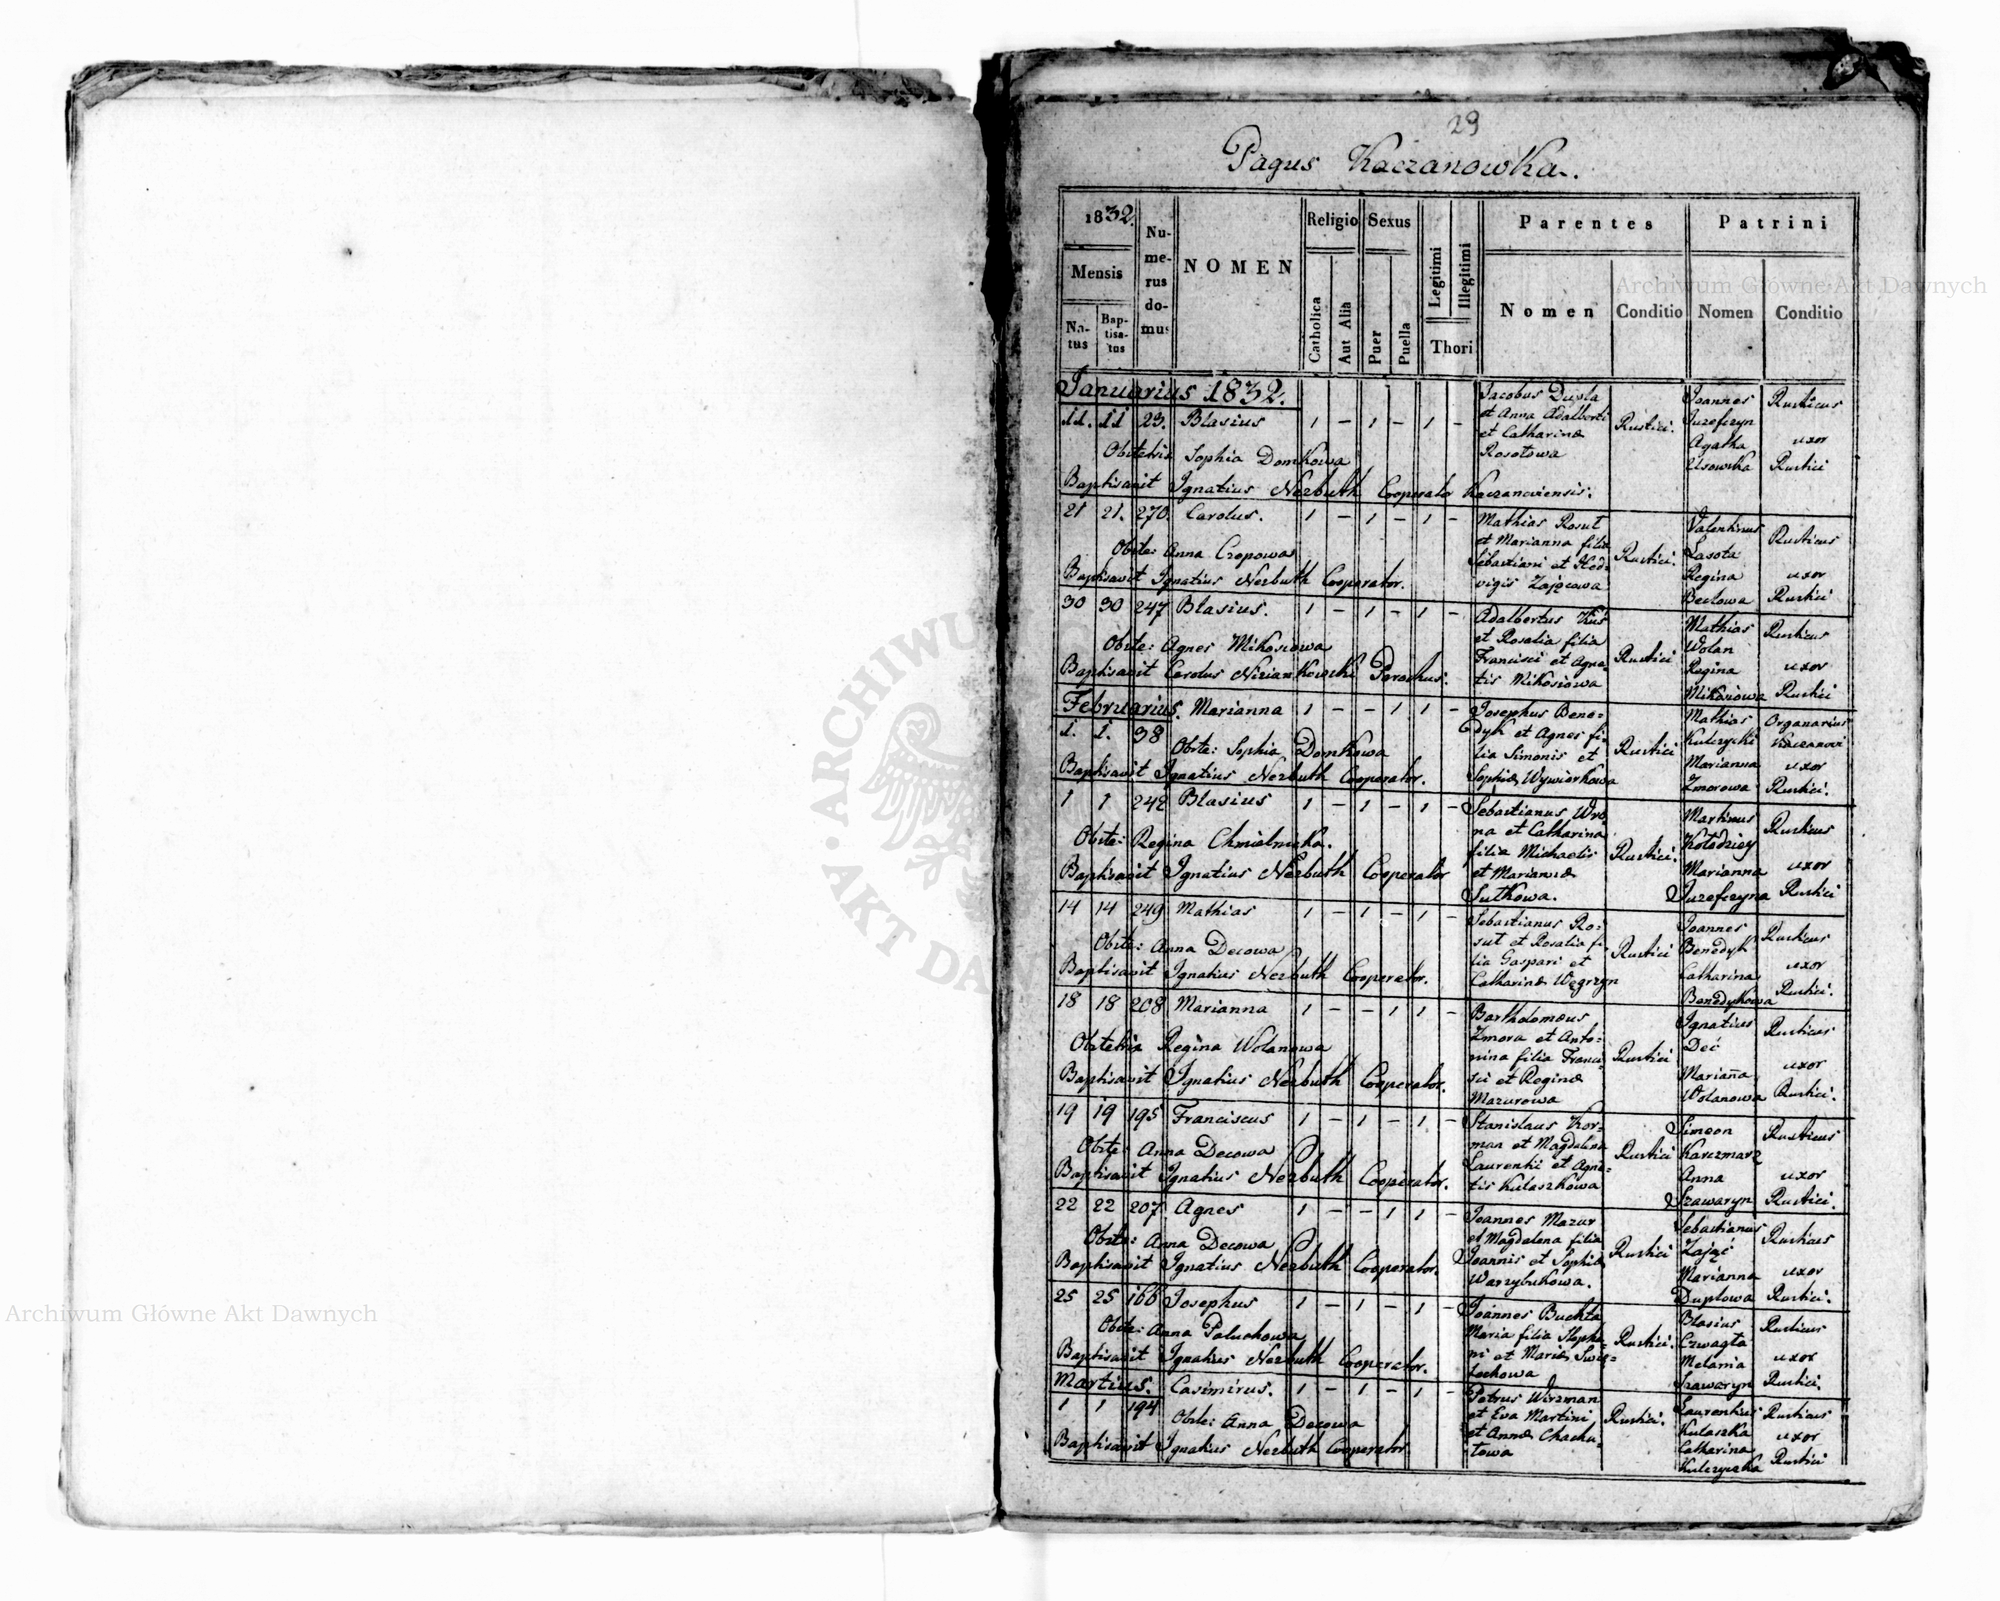 29
Pagus Kaczanowka.
1832.
Mensis
Natus
Baptisatus
Numerus domus
NOMEN
Religio
Catholica
Aut Alia
Sexus
Puer
Puella
Legitimi
Illegitimi
Thori
Parentes
Nomen
Conditio
Patrini
Nomen
Conditio
Januarius 1832.
11. 11 23. Blasius 1 – 1 – 1 –
Obstetrix Sophia Domkowa
Baptisavit Ignatius Nezbuth Cooperator Kaczanoviensis.
Jacobus Dupla
et Anna Adalberti
et Catharinæ
Rosotowa
Rustici.
Joannes
Juzefczyn
Agatha
Usowska
Rusticus
uxor
Rustici
21 21. 270. Carolus. 1 – 1 – 1 –
Obste: Anna Czopowa
Baptisavit Ignatius Nezbuth Cooperator.
Mathias Rosut
et Marianna filia
Sebastiani et Hed-
vigis Zającowa
Rustici.
Valentinus
Lasota
Regina
Beclowa
Rusticus
uxor
Rustici
30 30 247 Blasius. 1 – 1 – 1 –
Obste: Agnes Mikosiowa
Baptisavit Carolus Parochus.
Adalbertus Kuś
et Rosalia filia
Francisci et Agne-
tis Mikosiowa
Rustici
Mathias
Wolan
Regina
Mikosiowa
Rusticus
uxor
Rustici
Februarius. Marianna 1 – – 1 1 –
1. 1. 38
Obste: Sophia Domkowa
Baptisavit Ignatius Nezbuth Cooperator.
Josephus Bene=
dyk et Agnes fi-
lia Simonis et
Sophiæ Wywiorkowa
Rustici
Mathias
Kulczycki
Marianna
Zmorowa
Organarius
Kaczanovi
uxor
Rustici.
1 1 242 Blasius 1 – 1 – 1 –
Obste: Regina Chmielnicka.
Baptisavit Ignatius Nezbuth Cooperator
Sebastianus Wro
na et Catharina
filia Michaelis
et Mariannæ
Sutkowa.
Rustici.
Martinus
Kołodziey
Marianna
Juzefczyna
Rusticus
uxor
Rustici
14 14 249 Mathias 1 – 1 – 1 –
Obste: Anna Decowa
Baptisavit Ignatius Nezbuth Cooperator.
Sebastianus Ro-
sut et Rosalia fi-
lia Gaspari et
Catharinæ Węgrzyn
Rustici
Joannes
Benedyk
Catharina
Benedykowa
Rusticus
uxor
Rustici.
18 18 208 Marianna 1 – – 1 1 –
Obstetrix Regina Wolanowa
Baptisavit Ignatius Nezbuth Cooperator.
Bartholomæus
Zmora et Anto-
nina filia Franci-
sci et Reginæ
Mazurowa
Rustici
Ignatius
Dec
Mariana
Wolanowa
Rusticus
uxor
Rustici.
19 19 195 Franciscus 1 – 1 – 1 –
Obste: Anna Decowa
Baptisavit Ignatius Nezbuth Cooperator.
Stanislaus Kor-
man et Magdalena
Laurenti et Agne-
tis Kulaszkowa
Rustici
Simeon
Karczmarz
Anna
Szawaryn
Rusticus
uxor
Rustici.
22 22 207 Agnes 1 – – 1 1 –
Obste: Anna Decowa
Baptisavit Ignatius Nezbuth Cooperator.
Joannes Mazur
et Magdalena filia
Joannis et Sophiæ
Warzybukowa.
Rustici
Sebastianus
Zając
Marianna
Duplowa
Rusticus
uxor
Rustici.
25 25 166 Josephus 1 – 1 – 1 –
Obste: Anna Paluchowa
Baptisavit Ignatius Nezbuth Cooperator.
Joannes Buchta
Maria filia Stepha-
ni et Mariæ
Rustici.
Blasius
Czwagta
Melania
Szawaryn
Rusticus
uxor
Rustici.
Martius. Casimirus. 1 – 1 – 1 –
1 1 194
Obste: Anna Decowa
Baptisavit Ignatius Nezbuth Cooperator
Petrus Wirzman
et Eva Martini
et Annæ Chachu-
lowa
Rustici.
Laurentius
Kulaszka
Catharina
Kulczycka
Rusticus
uxor
Rustici
Archiwum Główne Akt Dawnych
Archiwum Główne Akt Dawnych
ARCHIWU
AKT DAW